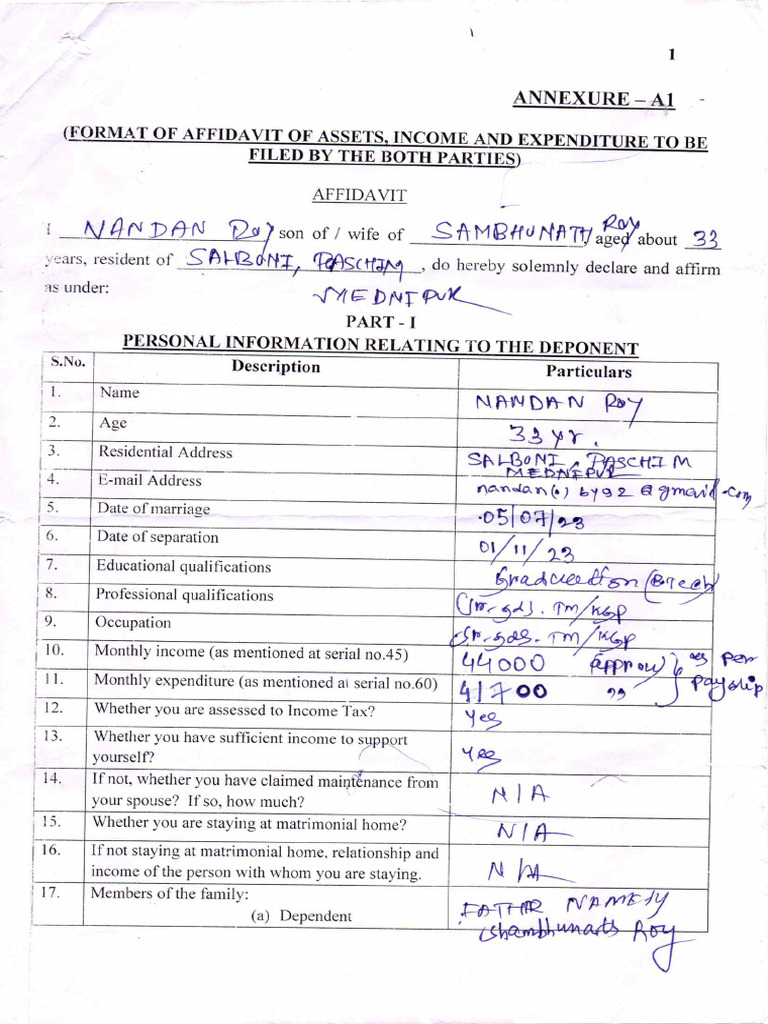 1
ANNEXURE – A1
(FORMAT OF AFFIDAVIT OF ASSETS, INCOME AND EXPENDITURE TO BE
FILED BY THE BOTH PARTIES)
AFFIDAVIT
I NANDAN Roy son of / wife of SAMBHUNATH Roy, aged about 33
years, resident of SALBONI, PASCHIM, do hereby solemnly declare and affirm
as under: MEDNIPUR
PART - I
PERSONAL INFORMATION RELATING TO THE DEPONENT
S.No. Description Particulars
1. Name NANDAN Roy
2. Age 33 yr.
3. Residential Address SALBONI, PASCHIM
MEDNIPUR
4. E-mail Address @gmail.com
5. Date of marriage 05/07/23
6. Date of separation 01/11/23
7. Educational qualifications Graduation (BTech)
8. Professional qualifications TM/KGP
9. Occupation TM/KGP
10. Monthly income (as mentioned at serial no.45) 44000 as per
11. Monthly expenditure (as mentioned at serial no.60) 41700 " payslip
12. Whether you are assessed to Income Tax? Yes
13. Whether you have sufficient income to support
yourself? Yes
14. If not, whether you have claimed maintenance from
your spouse? If so, how much? N/A
15. Whether you are staying at matrimonial home? N/A
16. If not staying at matrimonial home, relationship and
income of the person with whom you are staying. N/A
17. Members of the family:
(a) Dependent FATHER NAMELY
Roy